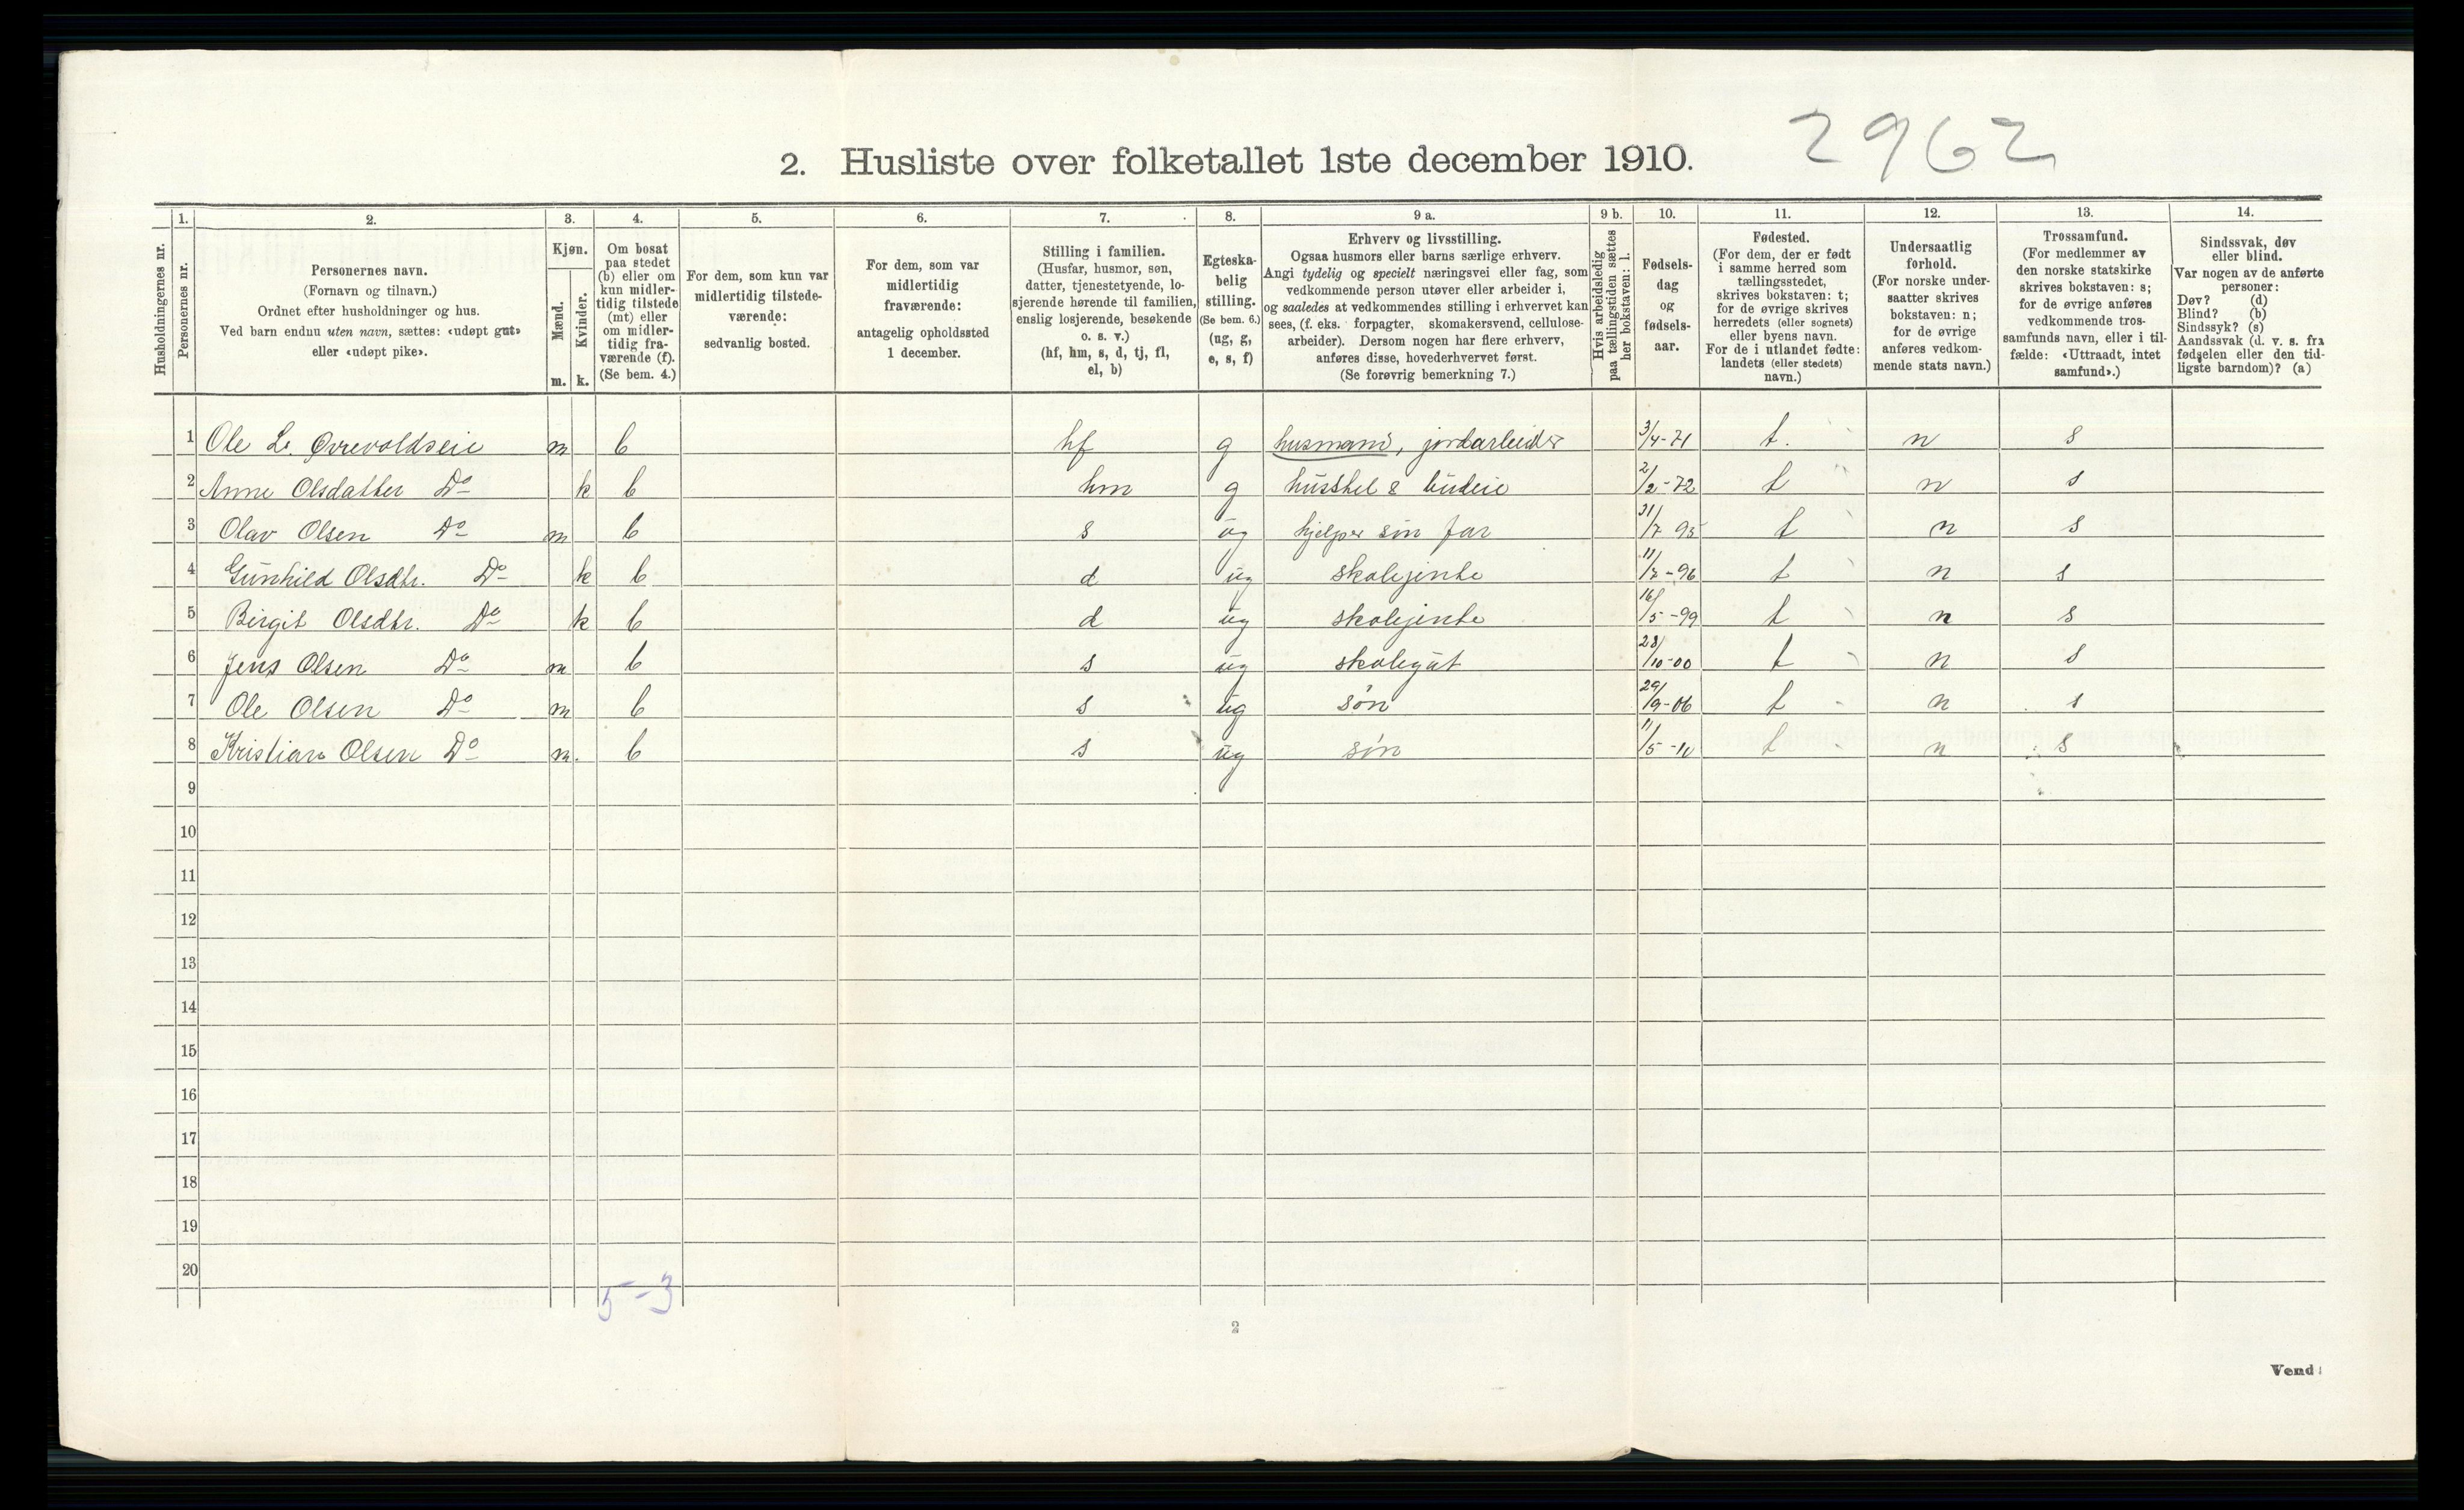 2. Husliste over folketallet 1ste december 1910. 2962
Husholdningernes nr.
1. Personernes nr.
2. Personernes navn.
(Fornavn og tilnavn.)
Ordnet efter husholdninger og hus.
Ved barn endnu uten navn, sættes: «udøpt gut»
eller «udøpt pike».
3. Kjøn.
Mænd. m.
Kvinder. k.
4. Om bosat
paa stedet
(b) eller om
kun midler-
tidig tilstede
(mt) eller
om midler-
tidig fra-
værende (f).
(Se bem. 4.)
5. For dem, som kun var
midlertidig tilstede-
værende:
sedvanlig bosted.
6. For dem, som var
midlertidig
fraværende:
antagelig opholdssted
1 december.
7. Stilling i familien.
(Husfar, husmor, søn,
datter, tjenestetyende, lo-
sjerende hørende til familien,
enslig losjerende, besøkende
o. s. v.)
(hf, hm, s, d, tj, fl,
el, b)
8. Egteska-
belig
stilling.
(Se bem. 6.)
(ug, g,
e, s, f)
9 a. Erhverv og livsstilling.
Ogsaa husmors eller barns særlige erhverv.
Angi tydelig og specielt næringsvei eller fag, som
vedkommende person utøver eller arbeider i,
og saaledes at vedkommendes stilling i erhvervet kan
sees, (f. eks. forpagter, skomakersvend, cellulose-
arbeider). Dersom nogen har flere erhverv,
anføres disse, hovederhvervet først.
(Se forøvrig bemerkning 7.)
9 b. Hvis arbeidsledig
paa tællingstiden sættes
her bokstaven: l.
10. Fødsels-
dag
og
fødsels-
aar.
11. Fødested.
(For dem, der er født
i samme herred som
tællingsstedet,
skrives bokstaven: t;
for de øvrige skrives
herredets (eller sognets)
eller byens navn.
For de i utlandet fødte:
landets (eller stedets)
navn.)
12. Undersaatlig
forhold.
(For norske under-
saatter skrives
bokstaven: n;
for de øvrige
anføres vedkom-
mende stats navn.)
13. Trossamfund.
(For medlemmer av
den norske statskirke
skrives bokstaven: s;
for de øvrige anføres
vedkommende tros-
samfunds navn, eller i til-
fælde: «Uttraadt, intet
samfund».)
14. Sindssvak, døv
eller blind.
Var nogen av de anførte
personer:
Døv? (d)
Blind? (b)
Sindssyk? (s)
Aandssvak (d. v. s. fra
fødselen eller den tid-
ligste barndom)? (a)
1 Ole L. Øvrevoldseie m b hf g husmand, jordarbeider 3/4-71 t. n s
2 Anne Olsdatter Do k b hm g husstel & budeie 2/2-72 t n s
3 Olav Olsen Do m b s ug hjelper sin far 31/7 95 t n s
4 Gunhild Olsdtr. Do k b d ug skolejente 11/7-96 t n s
5 Birgit Olsdtr. Do k b d ug skolejente 16/5-99 t n s
6 Jens Olsen Do m b s ug skolegut 28/10-00 t n s
7 Ole Olsen Do m b s ug søn 29/9-06 t n s
8 Kristian Olsen Do m. b s ug søn 11/5-10 t n s
9
10
11
12
13
14
15
16
17
18
19
20
5-3
2
Vend